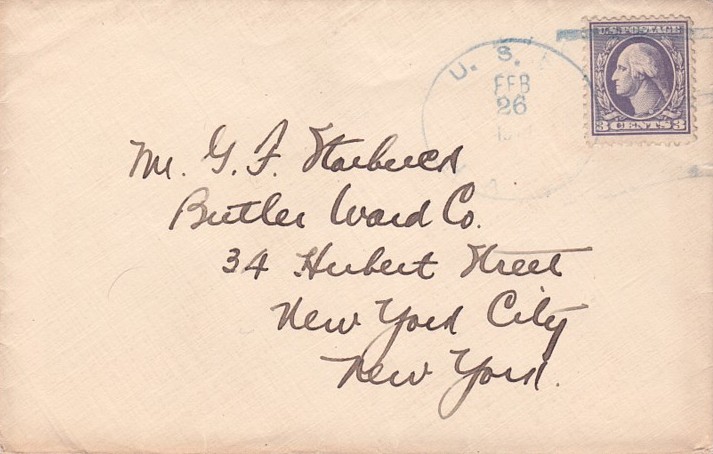 U. S.
FEB
26
U.S. POSTAGE
3 CENTS 3
Mr. G. F. Starbuck
Butler Ward Co.
34 Hubert Street
New York City
New York.